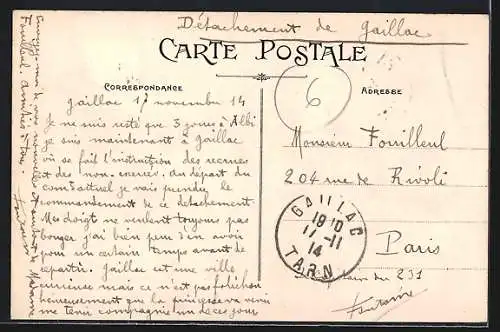 Détachement de Gaillac
CARTE POSTALE
CORRESPONDANCE
ADRESSE
6
Gaillac 17 novembre 14
Je ne suis resté que 3 jours à Albi
je suis maintenant à Gaillac
où se fait l'instruction des recrues
et des non-exercés. Au départ du
com actuel je vais prendre le
commandement de ce détachement.
Mes doigts ne veulent toujours pas
bouger j'ai bien peur d'en avoir
pour un certain temps avant de
repartir. Gaillac est une ville
curieuse mais ce n'est pas folichon
heureusement que la va venir
me tenir compagnie un de ces jours
Envoyez-moi de vos nouvelles et autant de Madame
Fouilleul. Amitiés à tous
Fontaine
Monsieur Fouilleul
204 rue de Rivoli
Paris
GAILLAC
19 10
17-11
14
TARN
du 231
Fontaine